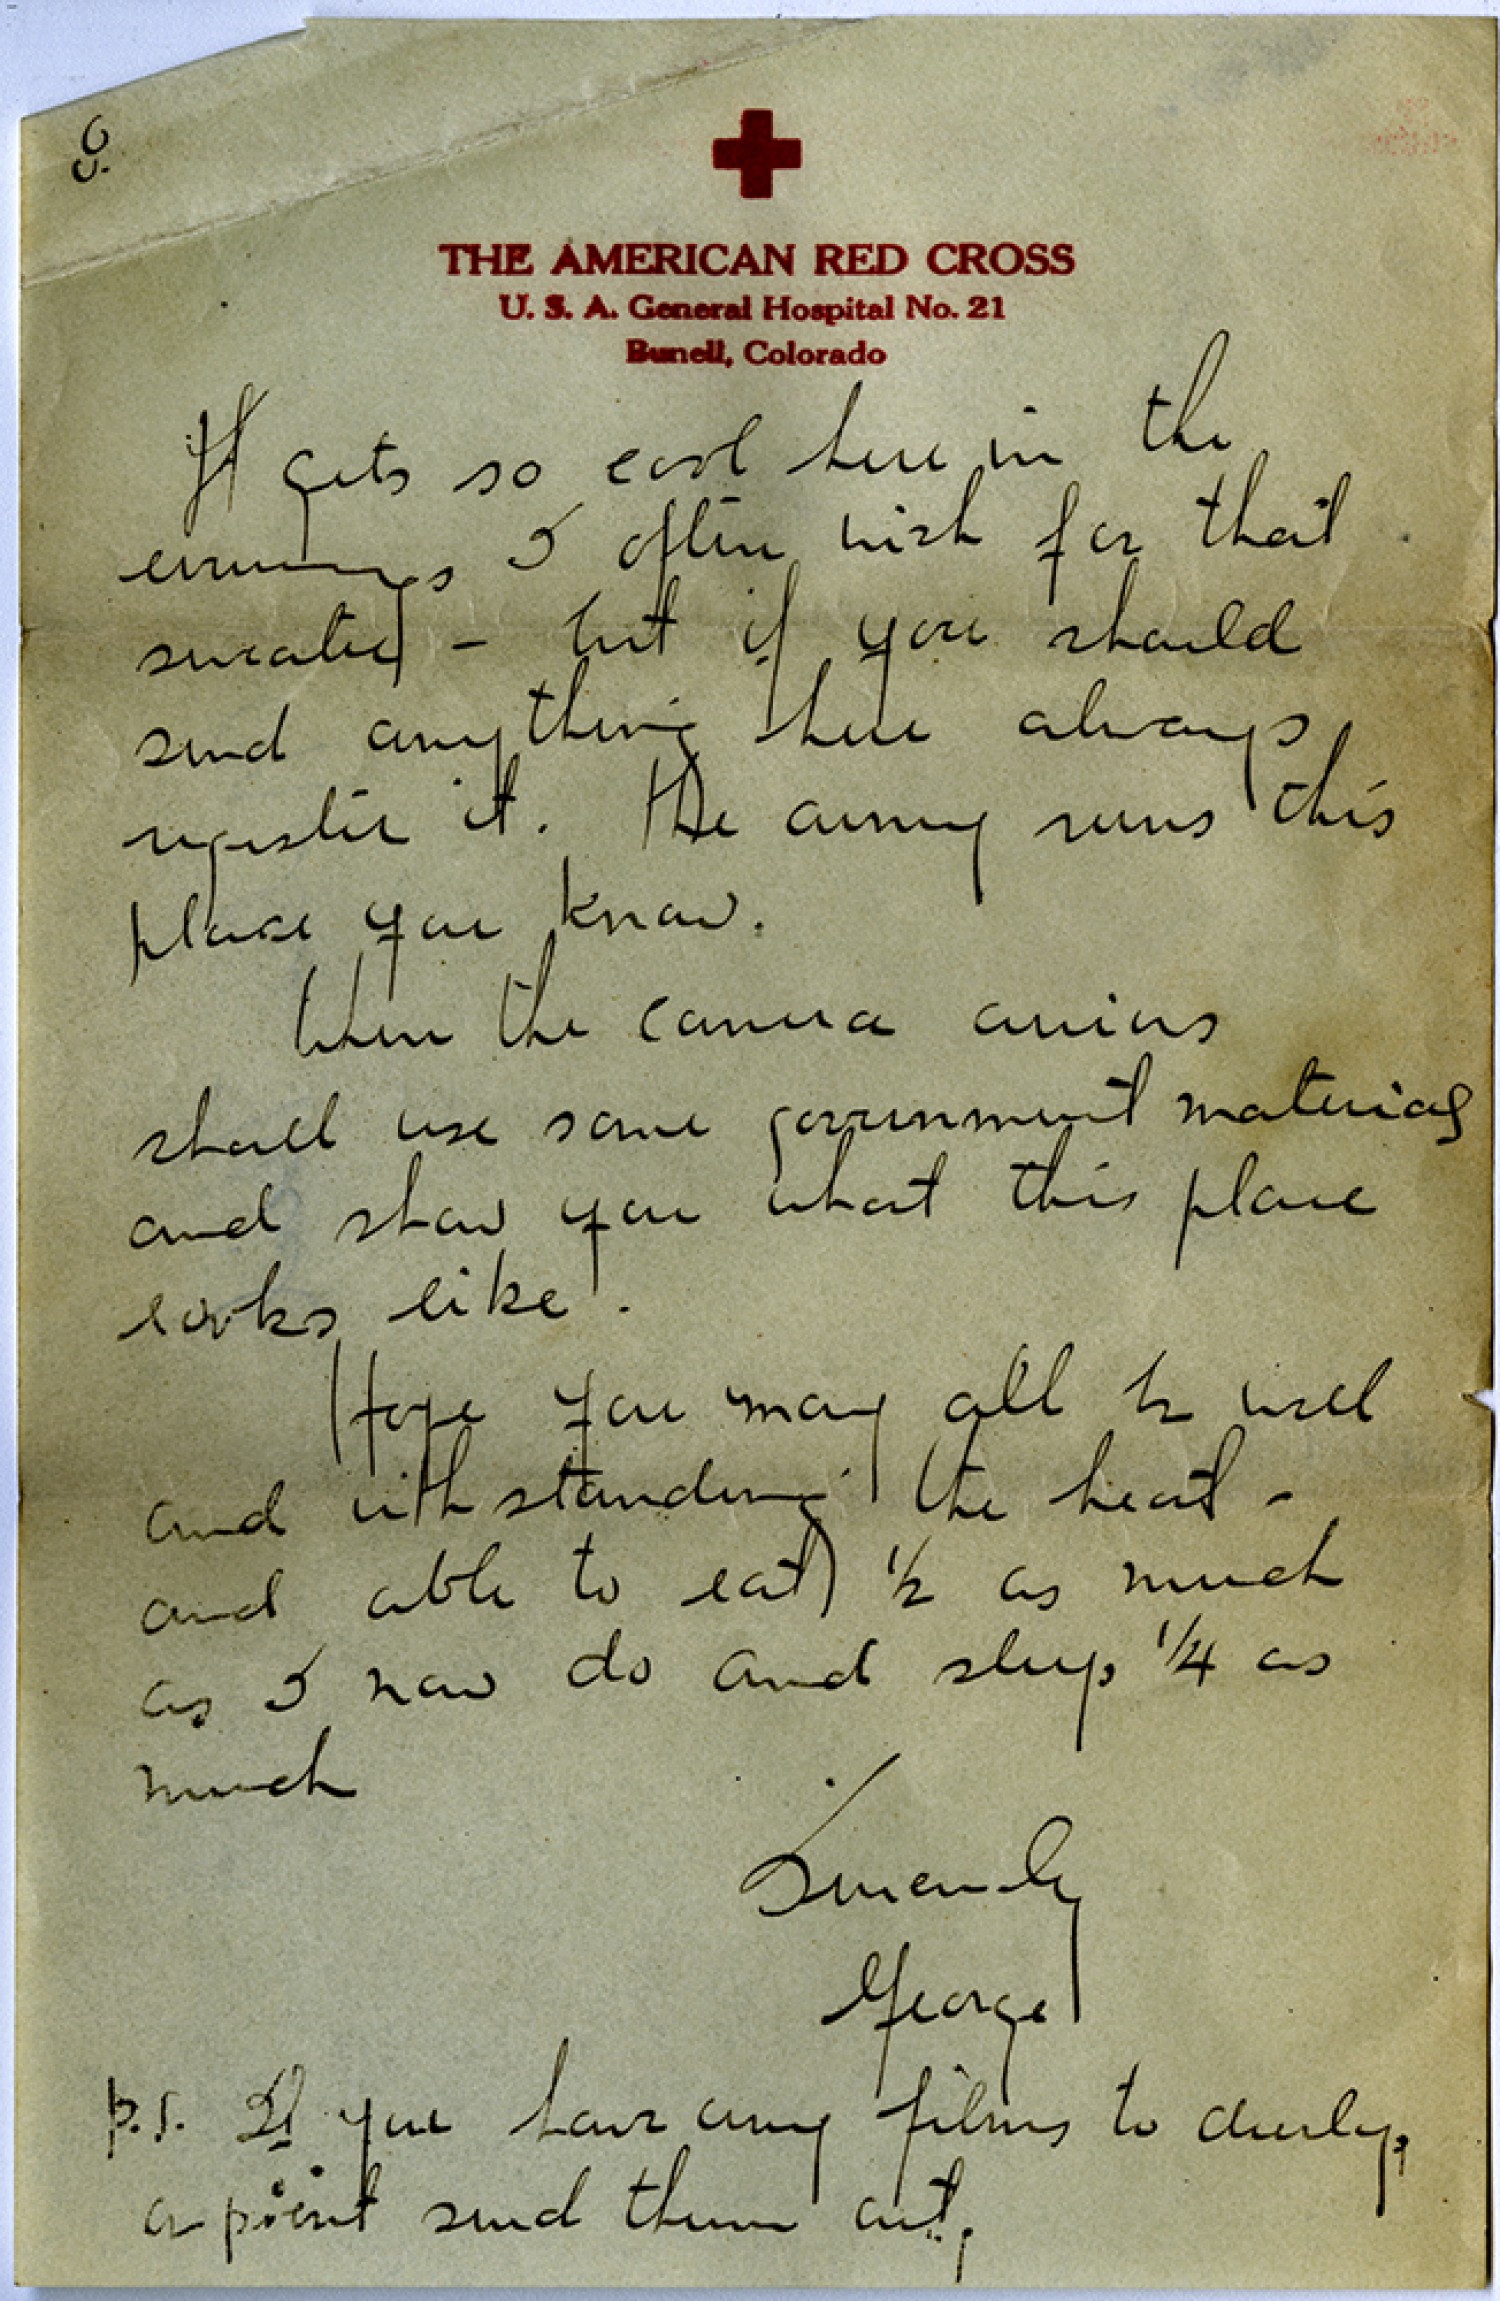 THE AMERICAN RED CROSS
U. S. A. General Hospital No. 21
Bunell, Colorado
It gets so cool here in the
evenings I often wish for that
sweater - but if you should
send anything here always
register it. The army runs this
place you know.
When the camera arrives
shall use some government material
and show you what this place
looks like.
Hope you may all be well
and withstanding the heat -
and able to eat 1/2 as much
as I now do and sleep 1/4 as
much
Sincerely
George
p.s. If you have any films to develop,
or print send them out.